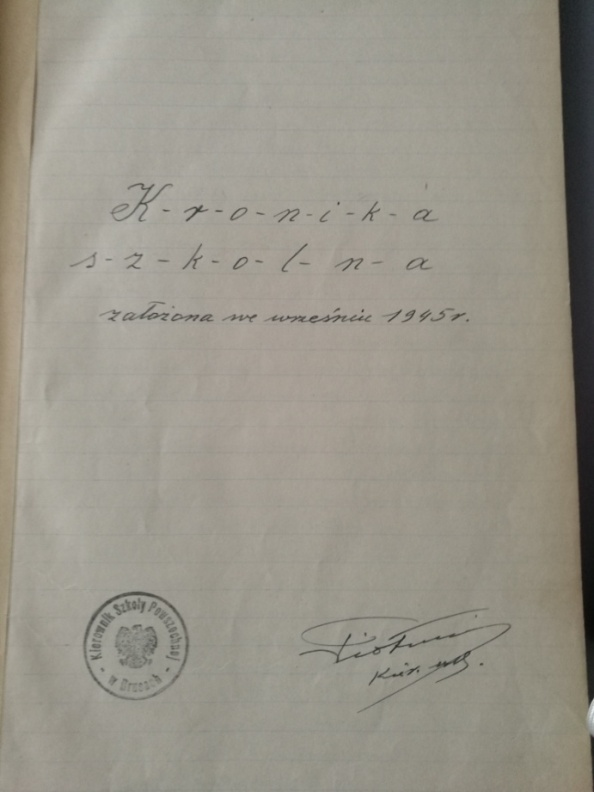 K-r-o-n-i-k-a
s-z-k-o-l-n-a
założona we wrześniu 1945r.
Kierownik Szkoły Powszechnej
w
Kier.